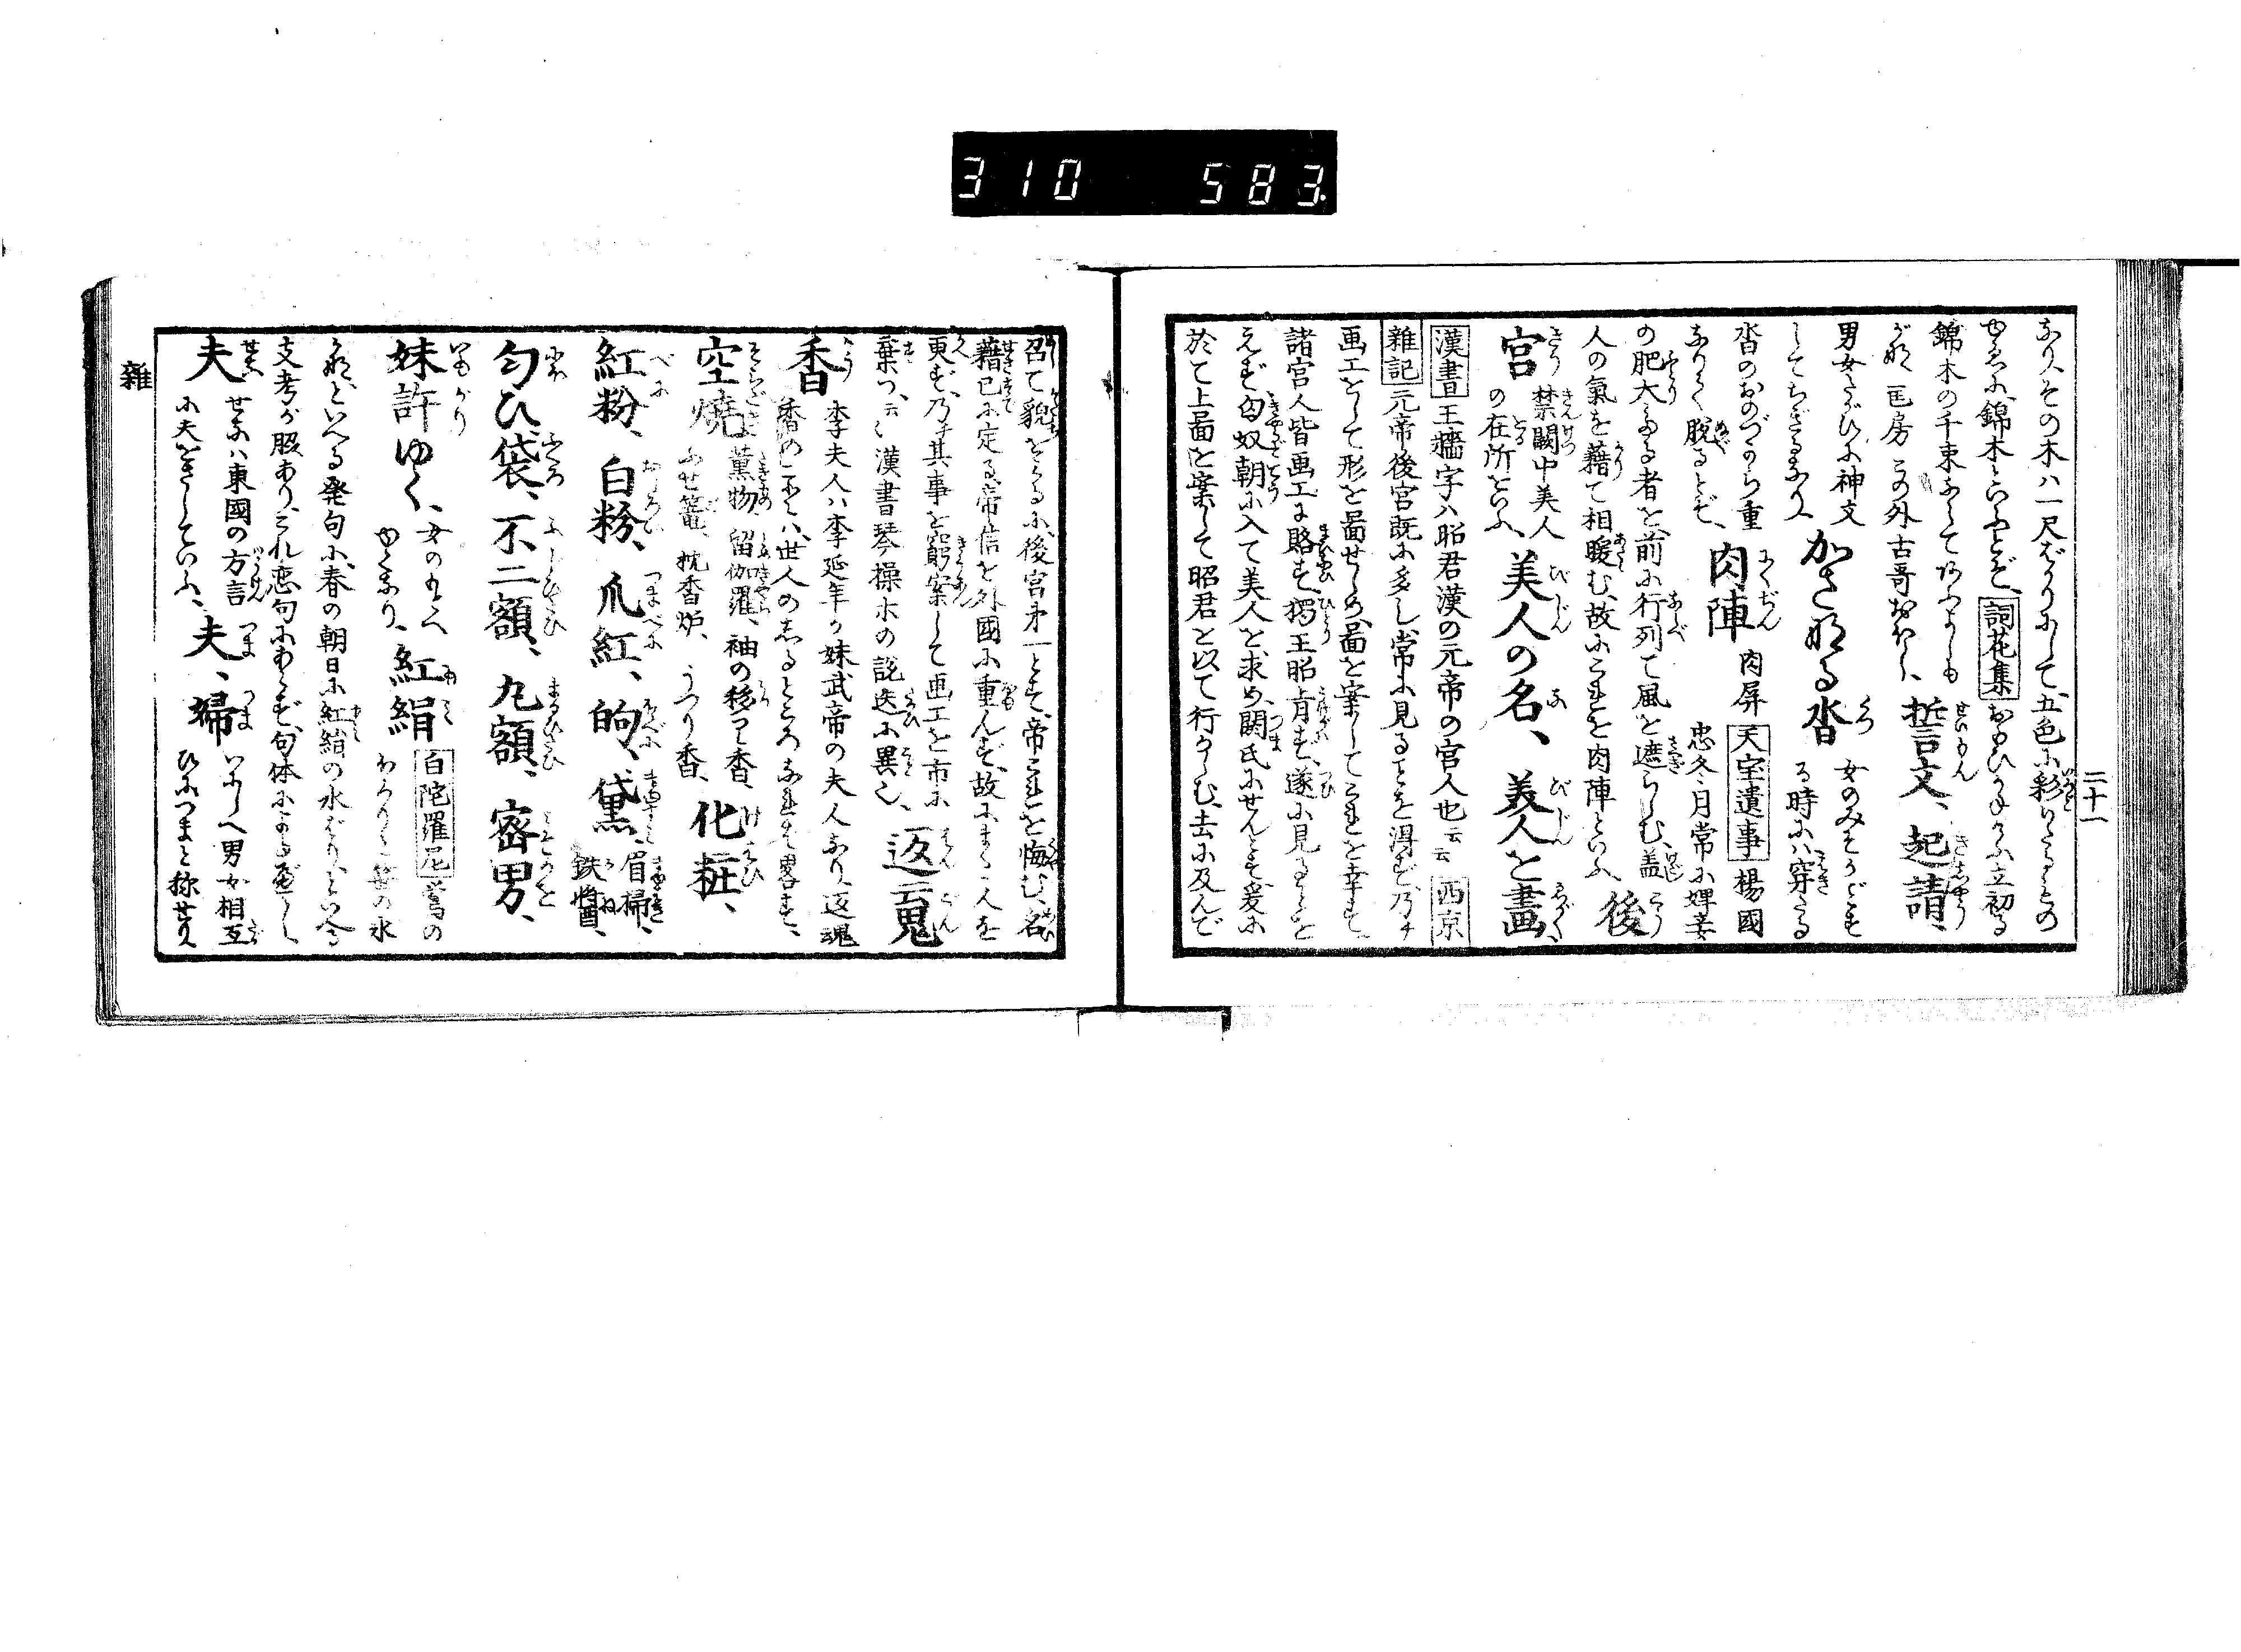 310 583
二十一
なり、その木ハ一尺ばかりにして、五色に彩りたるもの
ゆゑに錦木といふとぞ、詞花集 おもひかねけふ立初る
錦木の千束にして
がな 匡房 この外古哥おほし、誓文、起請、
男女たがひに神文
してちぎるなり、かさなる沓 女のみそかごとす
る時にハ穿たる
沓のおのづから重
なりて脱るとぞ、肉陣 肉屏 天宝遺事 楊國
忠冬月常に婢妾
の肥大なる者を前に行列て風を遮らしむ、蓋
人の氣を藉て相暖む、故にこれを肉陣といふ、後
宮 禁闕中美人
の在所をいふ、美人の名、美人を畫く、
漢書 王嬙字ハ昭君漢の元帝の宮人也云云 西京
雜記 元帝後宮既に多し、常に見ることを得ず、乃チ
画工をして形を啚せしめ、啚を案してこれを幸す、
諸宮人皆画工に賂す、獨王昭肯ず、遂に見ることを
えず、匈奴朝に入て美人を求め、閼氏にせんとす、爰に
於て上啚を案して昭君を以て行かしむ、去に及んで
召て貌をみるに、後宮才一とす、帝これを悔む、名
藉已に定る、帝信を外國に重んず、故にまた人を
更ず、乃チ其事を窮案して画工を市に
棄つ、云々 漢書琴操ホの説迭に異也、返魂
香 李夫人ハ李延年が妹武帝の夫人なり、返魂
香のことハ、世人のしるところなれば畧す、
空焼 薫物、留伽羅、袖の移り香、
ふせ篭、枕香炉、うつり香、化粧、
紅粉、白粉、爪紅、的、黛、眉掃、
鉄醤、
匂ひ袋、不二額、丸額、密男、
妹許ゆく、女のもとへ
ゆくなり、紅絹 百陀羅尼 鴬の
水
がな、といへる発句に、春の朝日に紅絹の水ばりといへる
支考が脇あり、これ恋句にあらず、句体によるべし、
夫 せなハ東國の方言
に夫をさしていふ、夫、婦 いにしへ男女相互
ひにつまと称せり、
雜